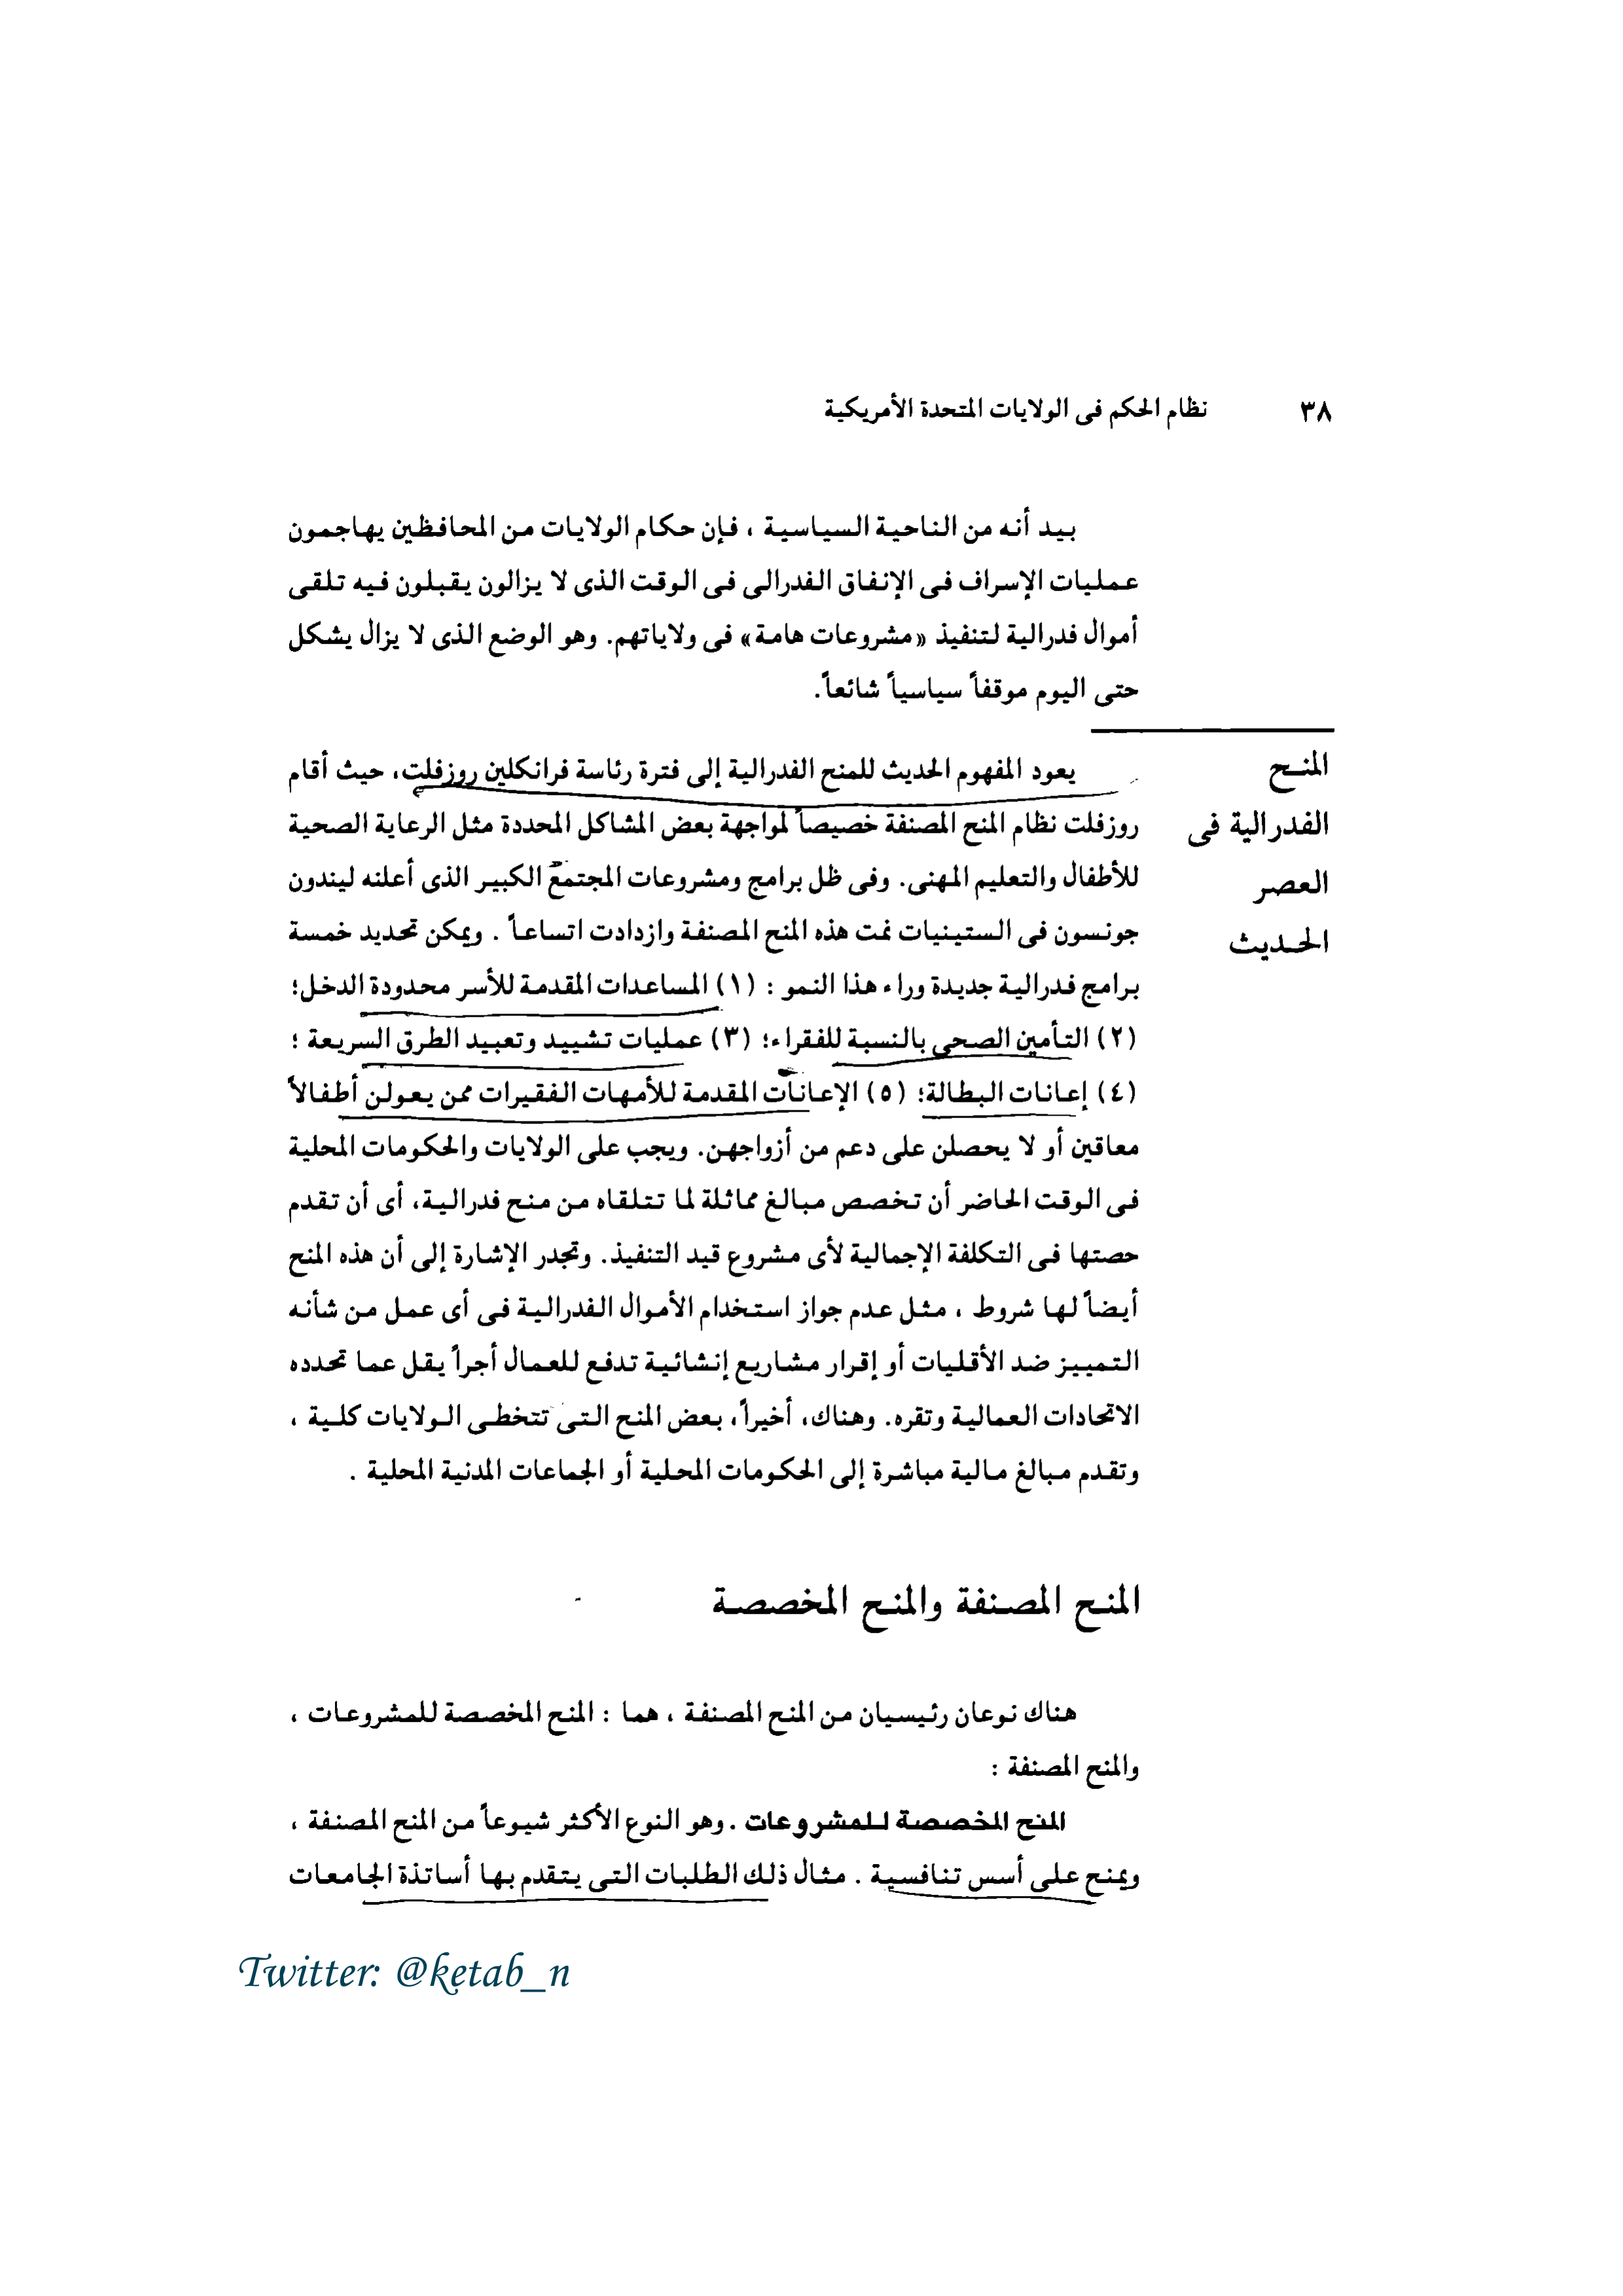 ٣٨ نظام الحكم فى الولايات المتحدة الأمريكية
بيد أنه من الناحية السياسية ، فإن حكام الولايات من المحافظين يهاجمون
عمليات الإسراف فى الإنفاق الفدرالى فى الوقت الذى لا يزالون يقبلون فيه تلقى
أموال فدرالية لتنفيذ «مشروعات هامة» فى ولاياتهم. وهو الوضع الذى لا يزال يشكل
حتى اليوم موقفاً سياسياً شائعاً.
المنح
الفدرالية فى
العصر
الحديث
يعود المفهوم الحديث للمنح الفدرالية إلى فترة رئاسة فرانكلين روزفلت، حيث أقام
روزفلت نظام المنح المصنفة خصيصاً لمواجهة بعض المشاكل المحددة مثل الرعاية الصحية
للأطفال والتعليم المهنى. وفى ظل برامج ومشروعات المجتمع الكبير الذى أعلنه ليندون
جونسون فى الستينيات نمت هذه المنح المصنفة وازدادت اتساعاً . ويمكن تحديد خمسة
برامج فدرالية جديدة وراء هذا النمو : (١) المساعدات المقدمة للأسر محدودة الدخل؛
(٢) التأمين الصحى بالنسبة للفقراء؛ (٣) عمليات تشييد وتعبيد الطرق السريعة ؛
(٤) إعانات البطالة؛ (٥) الإعانات المقدمة للأمهات الفقيرات ممن يعولن أطفالاً
معاقين أو لا يحصلن على دعم من أزواجهن. ويجب على الولايات والحكومات المحلية
فى الوقت الحاضر أن تخصص مبالغ مماثلة لما تتلقاه من منح فدرالية، أى أن تقدم
حصتها فى التكلفة الإجمالية لأى مشروع قيد التنفيذ. وتجدر الإشارة إلى أن هذه المنح
أيضاً لها شروط ، مثل عدم جواز استخدام الأموال الفدرالية فى أى عمل من شأنه
التمييز ضد الأقليات أو إقرار مشاريع إنشائية تدفع للعمال أجراً يقل عما تحدده
الاتحادات العمالية وتقره. وهناك، أخيراً، بعض المنح التى تتخطى الولايات كلية ،
وتقدم مبالغ مالية مباشرة إلى الحكومات المحلية أو الجماعات المدنية المحلية .
المنح المصنفة والمنح المخصصة
هناك نوعان رئيسيان من المنح المصنفة ، هما : المنح المخصصة للمشروعات ،
والمنح المصنفة :
المنح المخصصة للمشروعات . وهو النوع الأكثر شيوعاً من المنح المصنفة ،
ويمنح على أسس تنافسية . مثال ذلك الطلبات التى يتقدم بها أساتذة الجامعات
Twitter: @ketab_n